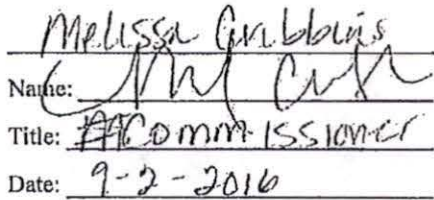 Melissa Cribbins
Name:
Title: Commissioner
Date: 9-2-2016